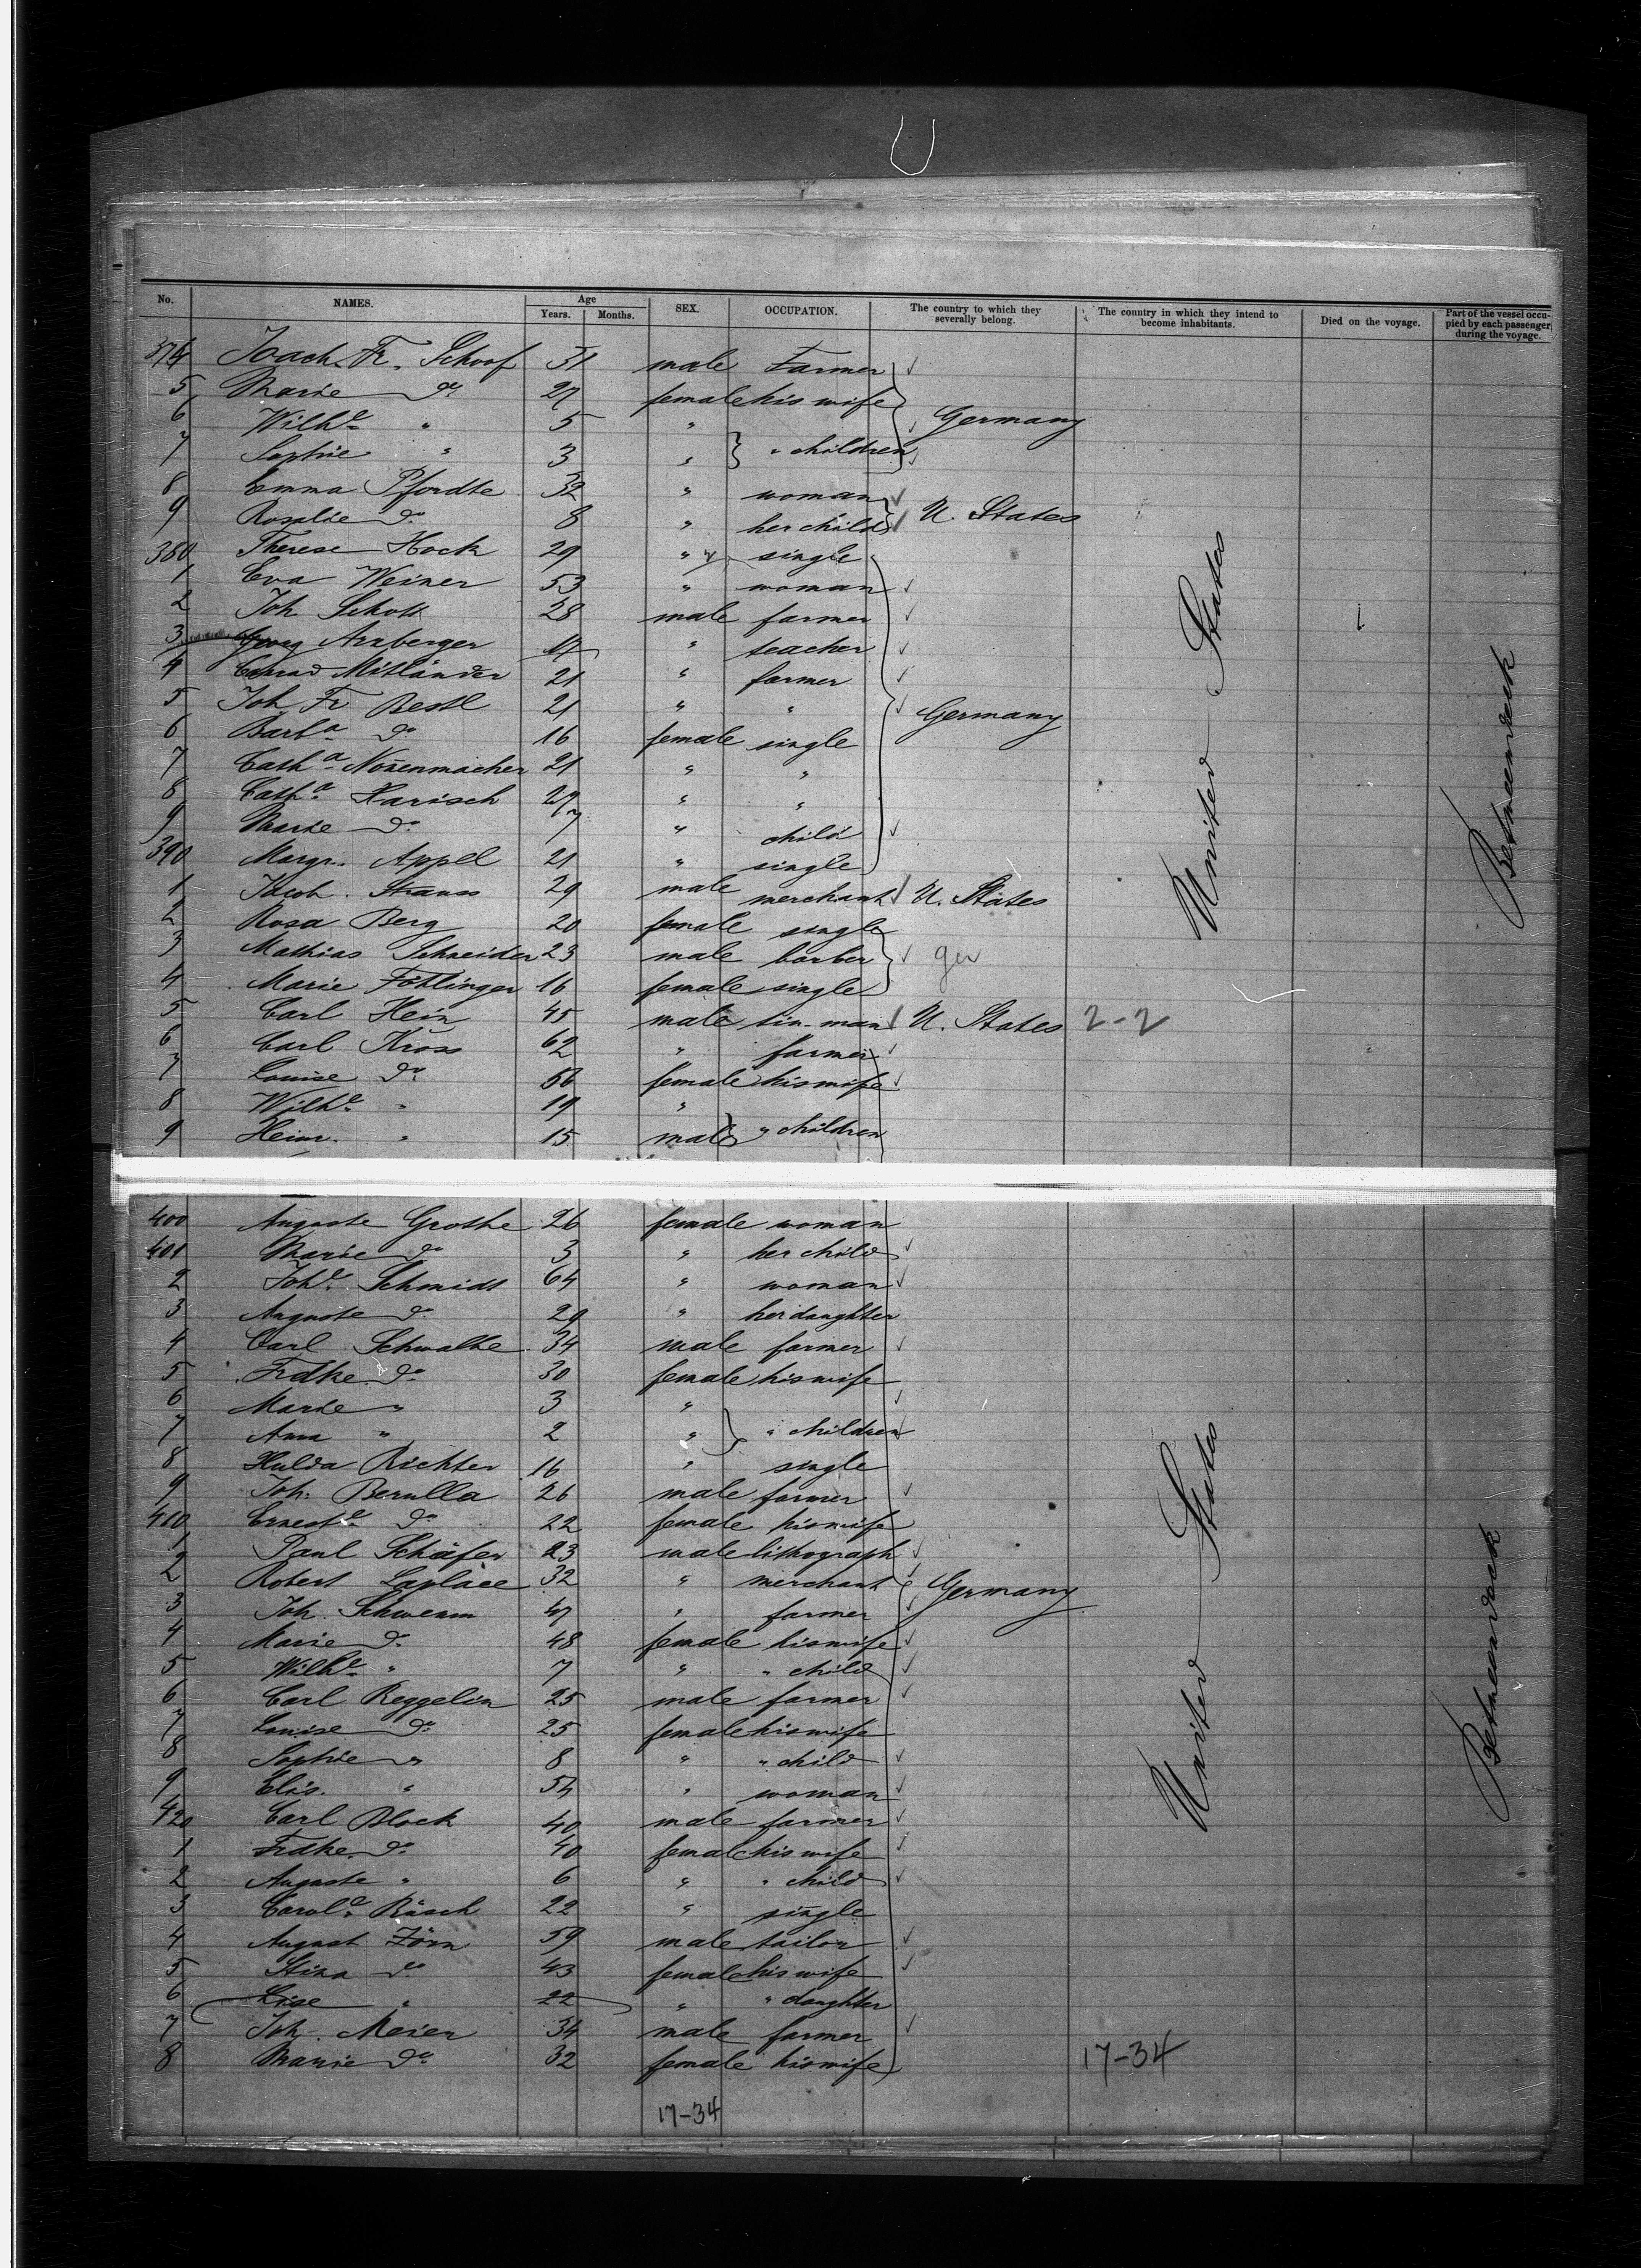 No. NAMES. Age Years. Months. SEX. OCCUPATION. The country to which they severally belong. The country in which they intend to become inhabitants. Died on the voyage. Part of the vessel occupied by each passenger during the voyage.
374 Joach. Fr. Schoof 31 male Farmer
5 Marie do 27 female his wife
6 Wilhe " 5 " Germany
7 Sophie " 3 " " children
8 Emma Pfordte 32 " woman
9 Rosalie do 8 " her child U. States
380 Therese Hock 29 " single
1 Eva Weiner 53 " woman
2 Joh Schott 28 male farmer
3 Georg Arzberger 17 " teacher
4 Conrad Mitländer 21 " farmer
5 Joh Fr Restl 21 " " Germany
6 Barba do 16 female single
7 Catha Nonnenmacher 21 " "
8 Catha Harisch 27 " "
9 Marie do 7 " child
390 Margr. Appel 21 " single
1 Jacob. Strauss 29 male merchant U. States
2 Rosa Berg 20 female single
3 Mathias Schneider 23 male barber ger
4 Marie Föttinger 16 female single
5 Carl Hein 45 male tin-man U. States 2-2
6 Carl Kross 62 " farmer
7 Louise do 56 female his wife
8 Wilhe " 19 "
9 Heinr. " 15 male " children
United States
Betweendeck
400 Auguste Grothe 26 female woman
401 Marie do 3 " her child
2 Johe Schmidt 64 " woman
3 Auguste do 29 " her daughter
4 Carl Schwalbe 34 male farmer
5 Frdke do 30 female his wife
6 Marie " 3 "
7 Anna " 2 " " children
8 Hulda Richter 16 " single
9 Joh. Berulla 26 male farmer
410 Erneste do 22 female his wife
1 Paul Schäfer 23 male lithograph
2 Robert Laplace 32 " merchant Germany
3 Joh. Schwemm 47 " farmer
4 Marie do 48 female his wife
5 Wilhe " 7 " " child
6 Carl Reggelin 25 male farmer
7 Louise do 25 female his wife
8 Sophie " 8 " " child
9 Elis. " 54 " woman
420 Carl Block 40 male farmer
1 Frdke. do 40 female his wife
2 Auguste " 6 " " child
3 Carole Räsch 22 " single
4 August Zörn 59 male tailor
5 Stina do 43 female his wife
6 Lise " 22 " " daughter
7 Joh. Meier 34 male farmer
8 Marie do 32 female his wife 17-34
United States
Betweendeck
17-34